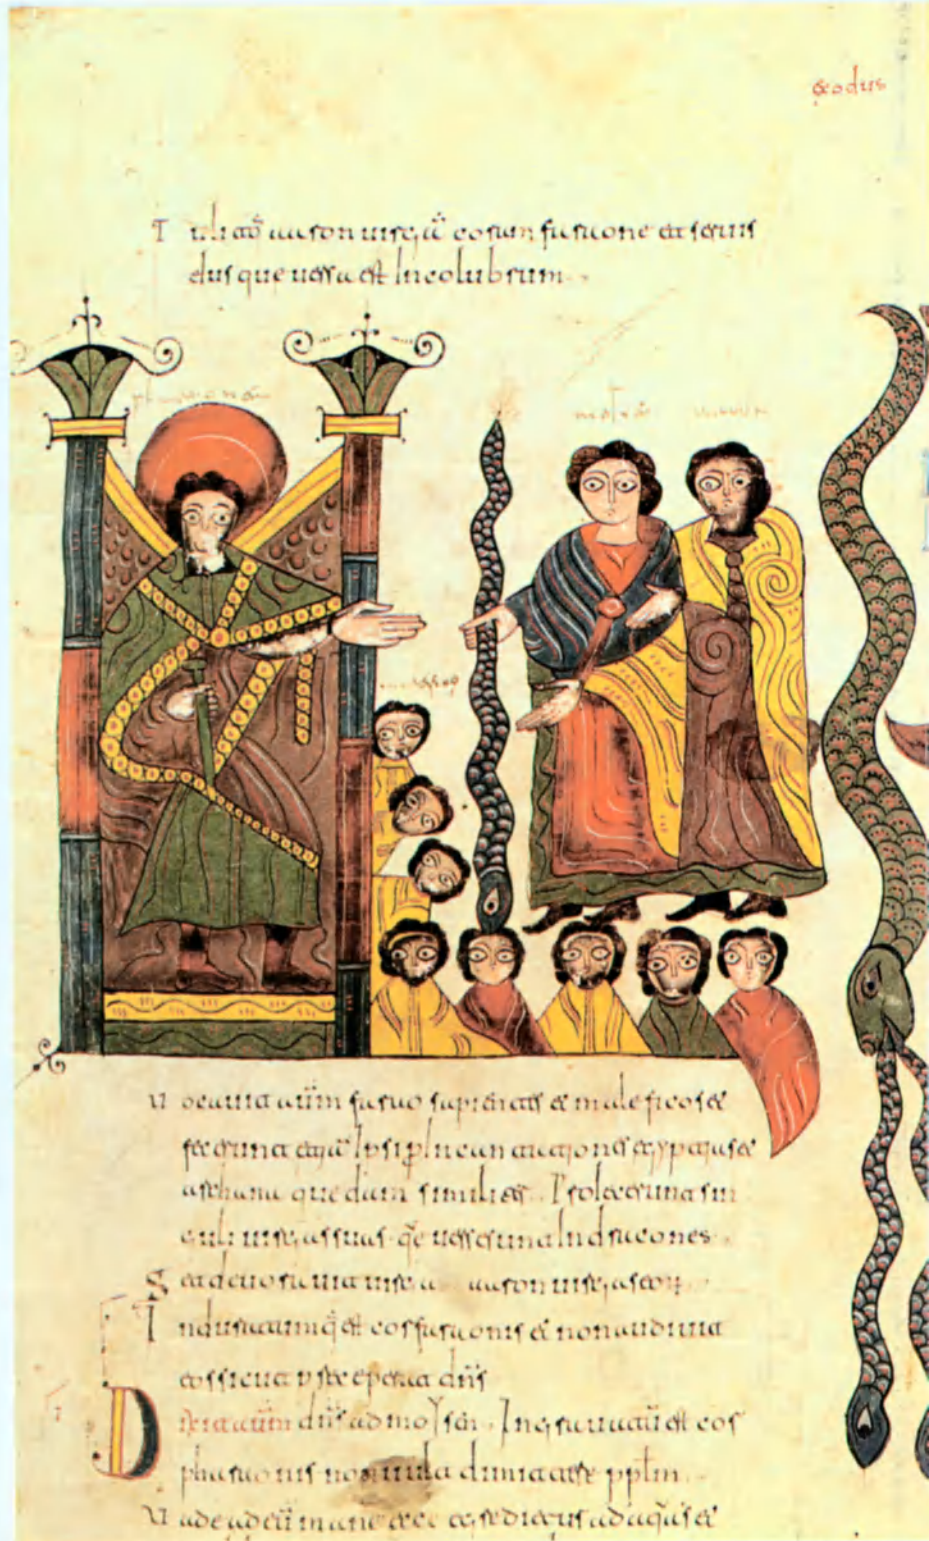 exodus
Tulitq aaron uirgā coram faraone et seruis
eius que uersa est In colubrum
aaron
Uocauit aūm farao sapientes et maleficos et
fecerunt etiā Ipsi p Incantationes egyptias et
archana quedam similiter. Proiecerunt sin
guli uirgas suas. qe uerse sunt In dracones
Sed deuorauit uirga aaron uirgas eorum
Induratumq est cor faraonis et non audiuit
eos sicut preceperat dns
Dixit aūm dns ad moysen. Ingrauatū est cor
pharaonis non uult dimittere pplm
Uade ad eū mane ecce egredietur ad aquas et